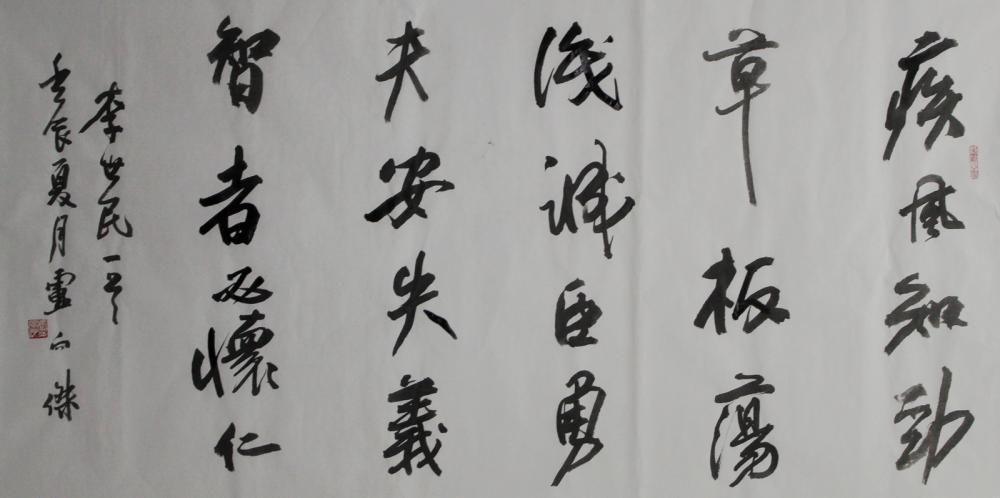 疾風知勁
草板蕩
識誠臣勇
夫安失義
智者必懷仁
李世民
壬辰夏月 傑